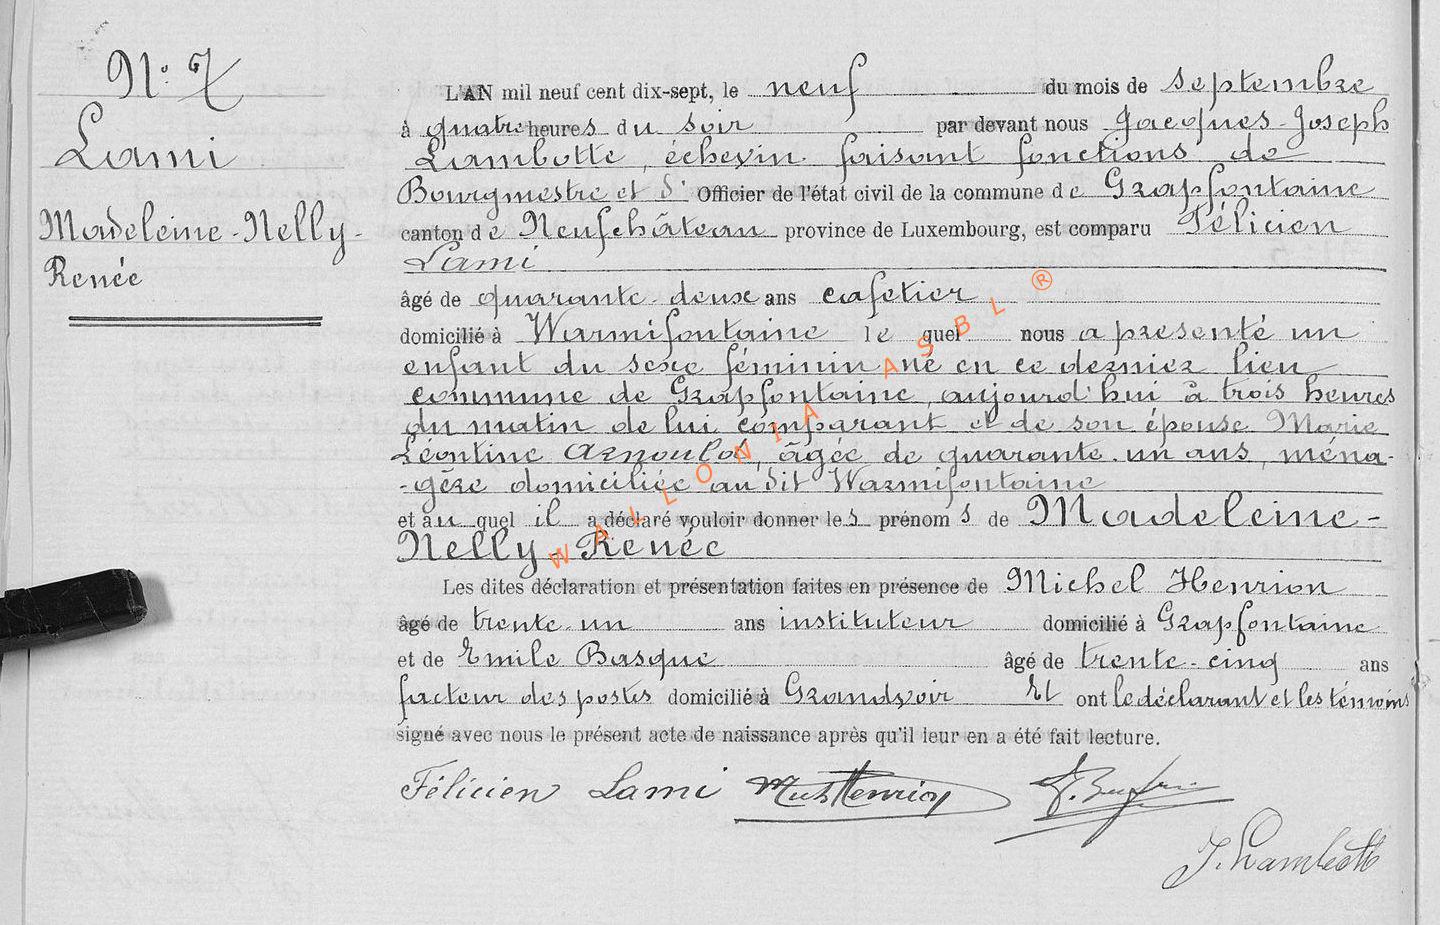 N° 7
Lami
Madeleine-Nelly-
Renée
L'AN mil neuf cent dix-sept, le neuf du mois de septembre
à quatre heures du soir par devant nous Jacques-Joseph
Lambotte, échevin faisant fonctions de
Bourgmestre et d' Officier de l'état civil de la commune de Grapfontaine
canton de Neufchâteau province de Luxembourg, est comparu Félicien
Lami
âgé de quarante-deux ans cafetier
domicilié à Warmifontaine lequel nous a présenté un
enfant du sexe féminin né en ce dernier lieu
commune de Grapfontaine, aujourd'hui à trois heures
du matin de lui comparant et de son épouse Marie
Léontine Arnould, âgée de quarante-un ans, ména-
-gère domiciliée au dit Warmifontaine
et au quel il a déclaré vouloir donner les prénoms de Madeleine-
Nelly-Renée
Les dites déclaration et présentation faites en présence de Michel Henrion
âgé de trente-un ans instituteur domicilié à Grapfontaine
et de Emile Basque âgé de trente-cinq ans
facteur des postes domicilié à Grandvoir Et ont le déclarant et les témoins
signé avec nous le présent acte de naissance après qu'il leur en a été fait lecture.
Félicien Lami Mich Henrion
J. Lambotte
WALLONIA ASBL ®